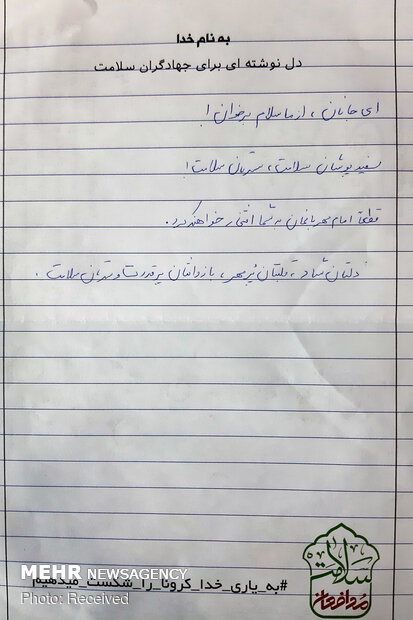 به نام خدا
دل نوشته ای برای جهادگران سلامت
ای جانان ، از ما سلام برخوان !
سفید پوشان سلامت ، سربازان سلامت !
قطعاً امام مهربانمان به شما افتخار خواهند کرد .
دلتان شاد ، قلبتان پُر مهر ، بازوانتان پرقدرت و تنتان سلامت .
سلامت
مدافعان
#به_یاری_خدا_کرونا_را_شکست_میدهیم
MEHR NEWSAGENCY
Photo: Received